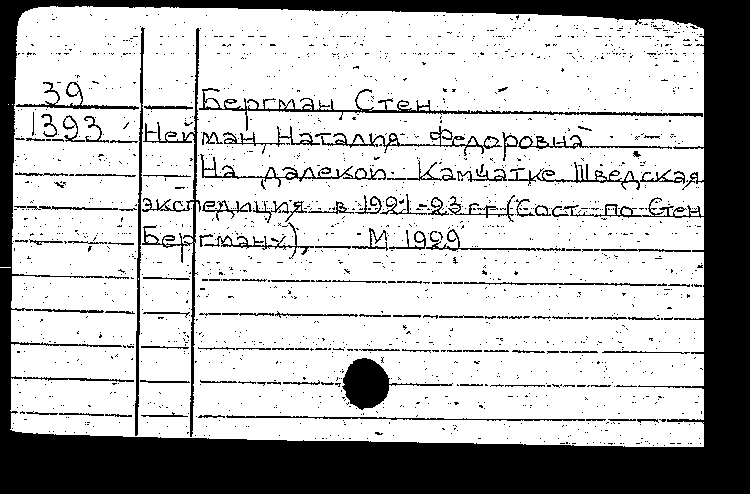 39
Бергман, Стен
1393
Нейман, Наталия Федоровна
На далекой Камчатке. Шведская
экспедиция в 1921-23 гг (Сост. по Стен
Бергману), М, 1929